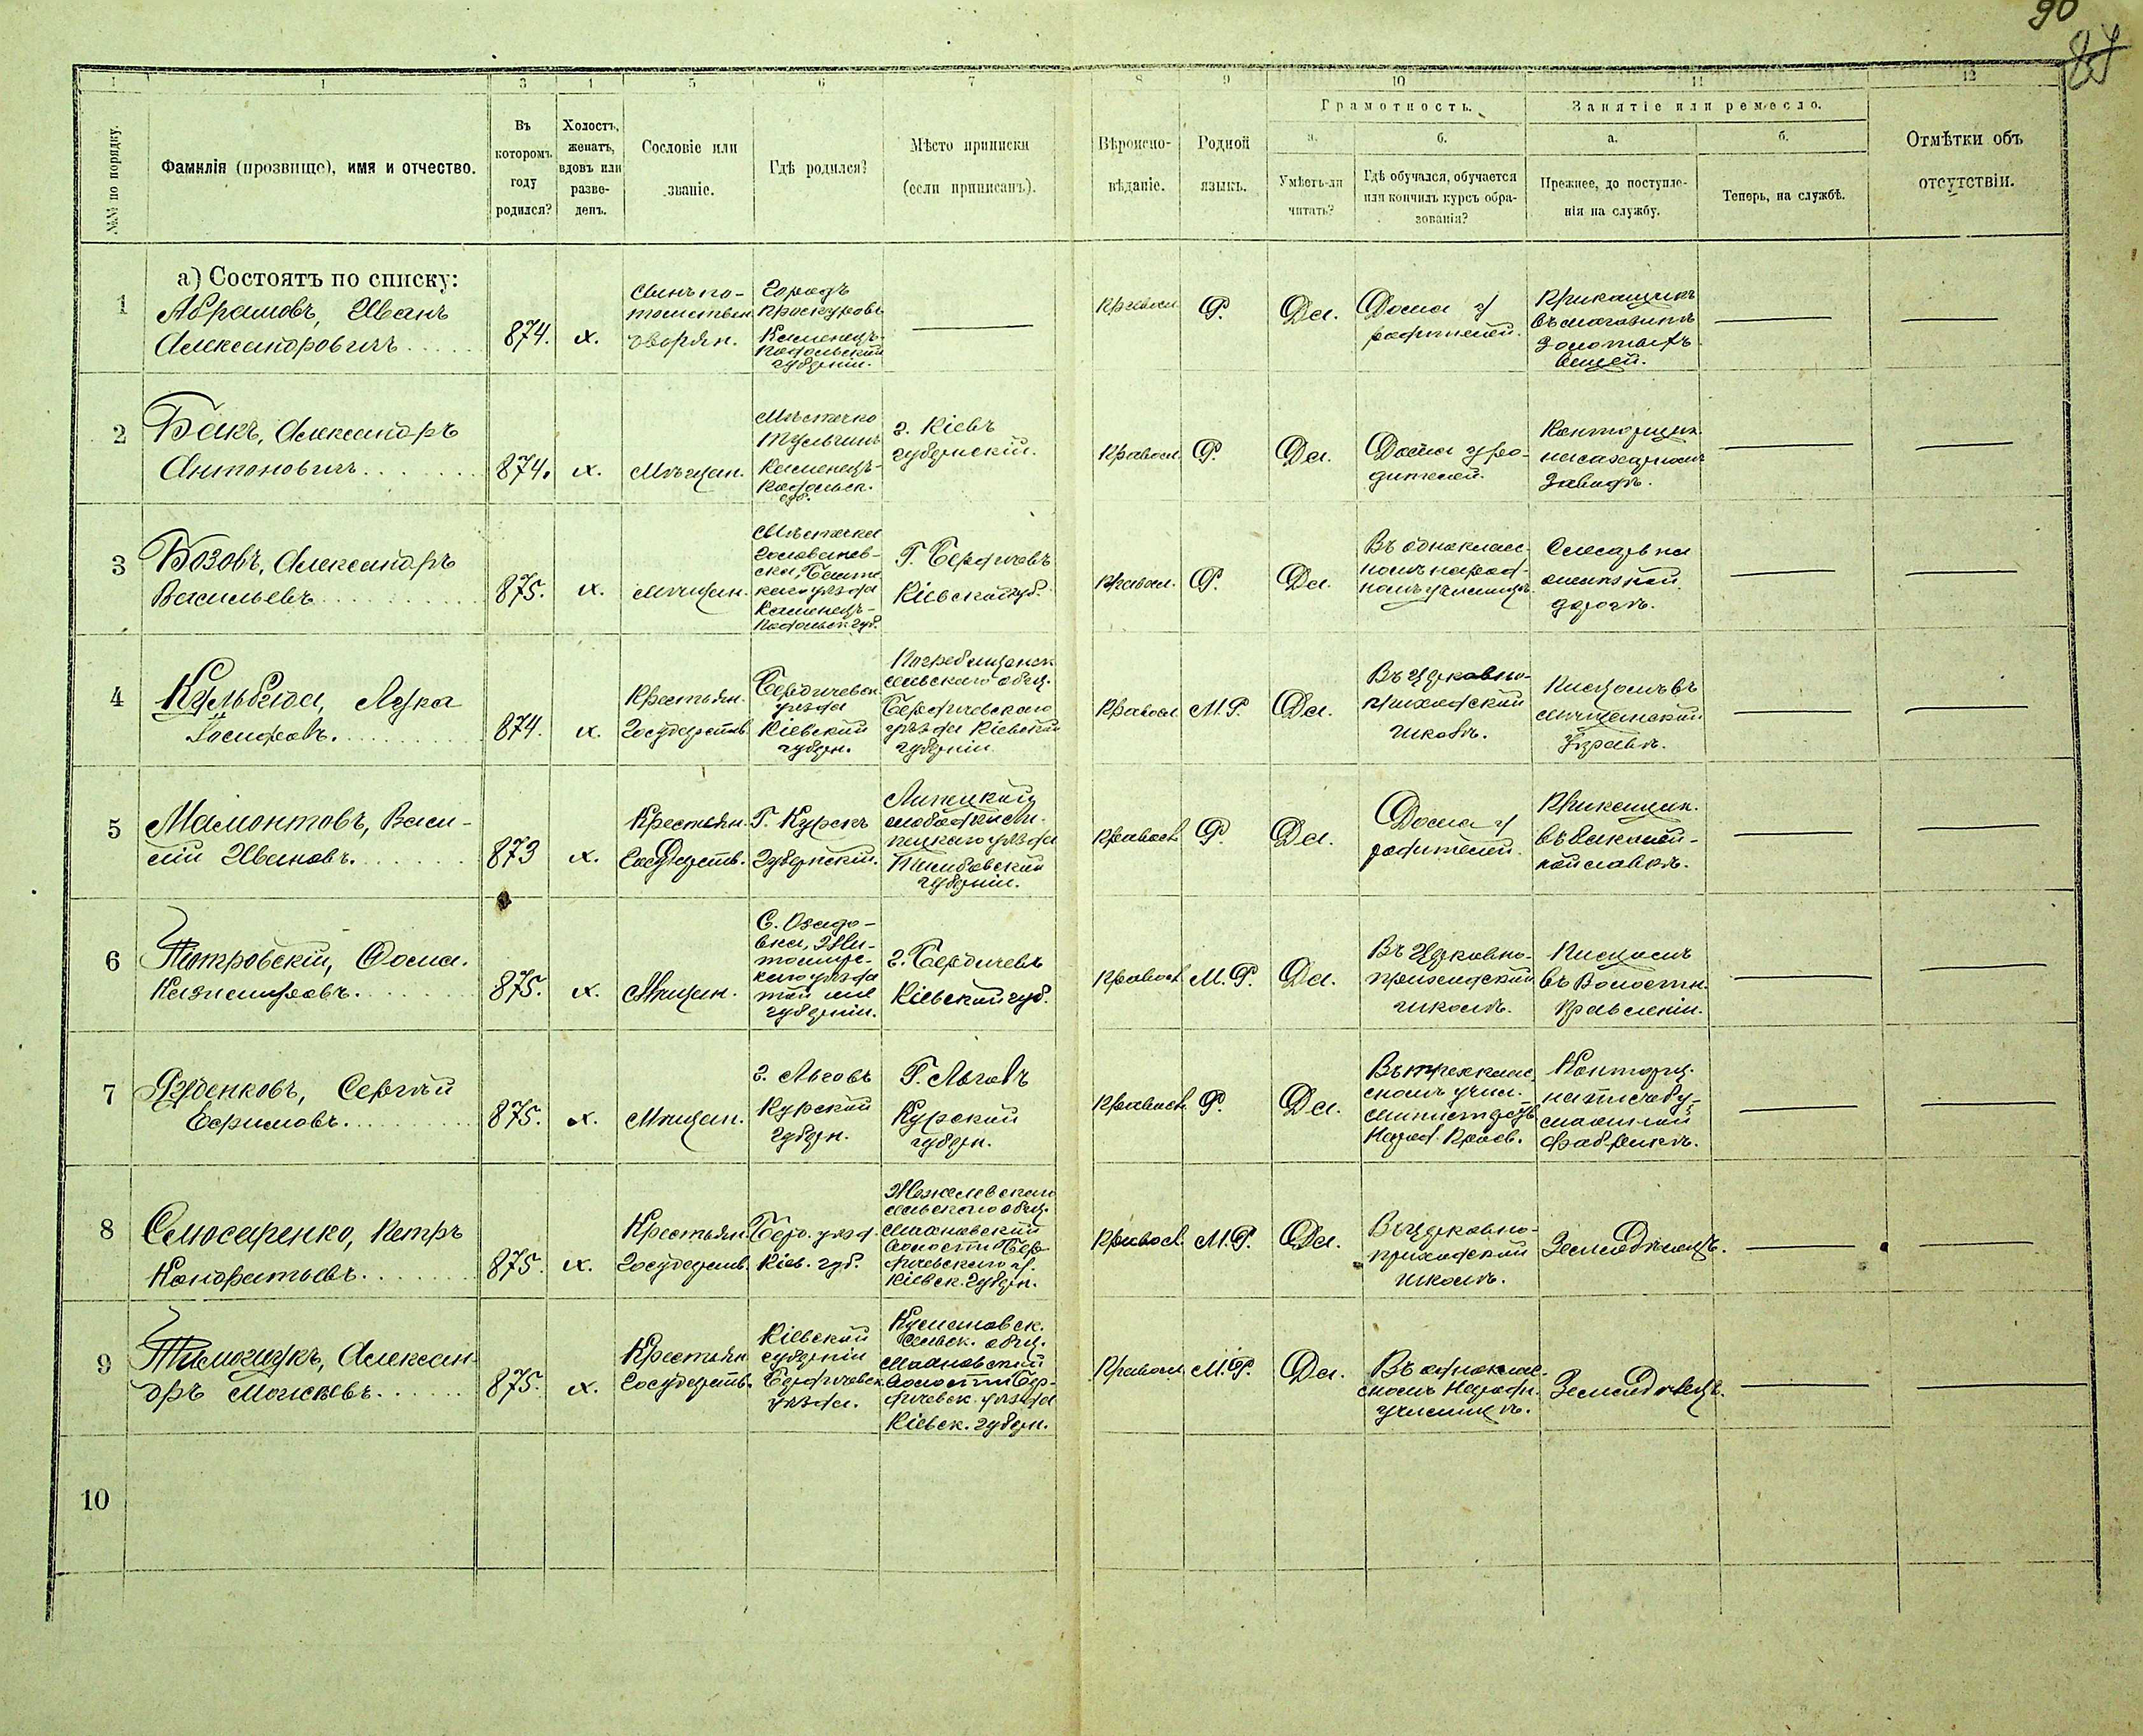 90
87
1 1 3 4 5 6 7 8 9 10 11 12
№№ по порядку.
Фамилія (прозвище), имя и отчество.
Въ
которомъ
году
родился?
Холостъ,
женатъ,
вдовъ или
разве-
денъ.
Сословіе или
званіе.
Гдѣ родился?
Мѣсто приписки
(если приписанъ).
Вѣроиспо-
вѣданіе.
Родной
языкъ.
Грамотность.
а.
Умѣетъ-ли
читать?
б.
Гдѣ обучался, обучается
или кончилъ курсъ обра-
зованія?
Занятіе или ремесло.
а.
Прежнее, до поступле-
нія на службу.
б.
Теперь, на службѣ.
Отмѣтки объ
отсутствіи.
а) Состоятъ по списку:
1
Абрамовъ, Иванъ
Александровичъ
874.
х.
Сынъ по-
томствен.
дворян.
Городъ
Проскуровъ
Каменецъ-
Подольской
губерніи.
—
Правосл.
Р.
Да.
Дома у
родителей.
Прикащикъ
въ магазинѣ
золотыхъ
вещей.
—
—
2
Бакъ, Александръ
Антоновичъ
874.
х.
Мѣщан.
Мѣстечко
Тульчинъ
Каменецъ-
Подольск.
губ.
г. Кіевъ
губернскій.
Правосл.
Р.
Да.
Дома у ро-
дителей.
Конторщик.
на сахарномъ
заводѣ.
—
—
3
Бозовъ, Александръ
Васильевъ
875.
х.
Мѣщан.
Мѣстечка
Голованев-
ска, Балт-
скаго уѣзда
Каменецъ-
Подольск. губ.
Г. Бердичевъ
Кіевской губ.
Правосл.
Р.
Да.
Въ однокласс-
номъ народ-
номъ училищѣ.
Слесарь на
желѣзной
дорогѣ.
—
—
4
Кульбида, Лука
Іосифовъ.
874.
х.
Крестьян.
Государств.
Бердичевск.
уѣзда
Кіевской
губерн.
Погребищенск.
сельскаго общ.
Бердичевскаго
уѣзда Кіевской
губерніи
Правосл.
М. Р.
Да.
Въ Церковно-
приходской
школѣ.
Писцомъ въ
мѣщанской
Управѣ.
—
—
5
Мамонтовъ, Васи-
лій Ивановъ.
873
х.
Крестьян.
Государств.
Г. Курскъ
Губернскій.
слободы
уѣзда
Тамбовской
губерніи.
Правосл.
Р.
Да.
Дома у
родителей.
Прикащик.
въ бакалей-
ной лавкѣ.
—
—
6
Піотровскій, Ѳома
Казимировъ.
875.
х.
Мѣщан.
С. Озадо-
вка, Жи-
томирс-
каго уѣзда
той же
губерніи.
г. Бердичевъ
Кіевской губ.
Правосл.
М. Р.
Да.
Въ Церковно-
приходской
школѣ.
Писцомъ
въ Волостн.
Правленіи.
—
—
7
Руденковъ, Сергѣй
Ефимовъ.
875.
х.
Мѣщан.
г. Льговъ
Курской
губерн.
Г. Льговъ
Курской
губерн.
Правосл.
Р.
Да.
Въ трехклас-
сномъ учил.
Министерств.
Народ. Просв.
Конторщ.
на писчебу-
мажной
фабрикѣ.
—
—
8
Слюсаренко, Петръ
Кондратьевъ.
875.
х.
Крестьян.
Государств.
Берд. уѣзд.
Кіев. губ.
Жежелевскаго
сельскаго общ.
Махновской
волости Бер-
дичевскаго у.
Кіевск. Губерн.
Правосл.
М. Р.
Да.
Въ Церковно-
приходской
школѣ.
Земледѣлецъ.
—
—
9
Тимощукъ, Алексан-
дръ Моисѣевъ.
875.
х.
Крестьян.
Государств.
Кіевской
губерніи
Бердичевск.
уѣзда.
Кумановск.
Сельск. общ.
Махновской
волости Бер-
дичевск. уѣзда
Кіевск. губерн.
Правосл.
М. Р.
Да.
Въ одноклас-
сномъ Народн.
училищѣ.
Земледѣлецъ.
—
—
10